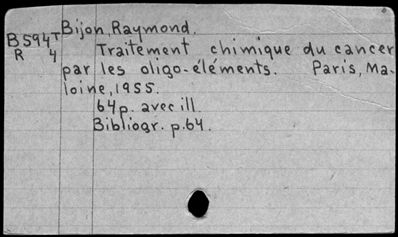 Bijon, Raymond.
B594T
R 4
Traitement chimique du cancer
par les oligo-éléments. Paris, Ma-
loine, 1955.
64p. avec ill.
Bibliogr. p.64.